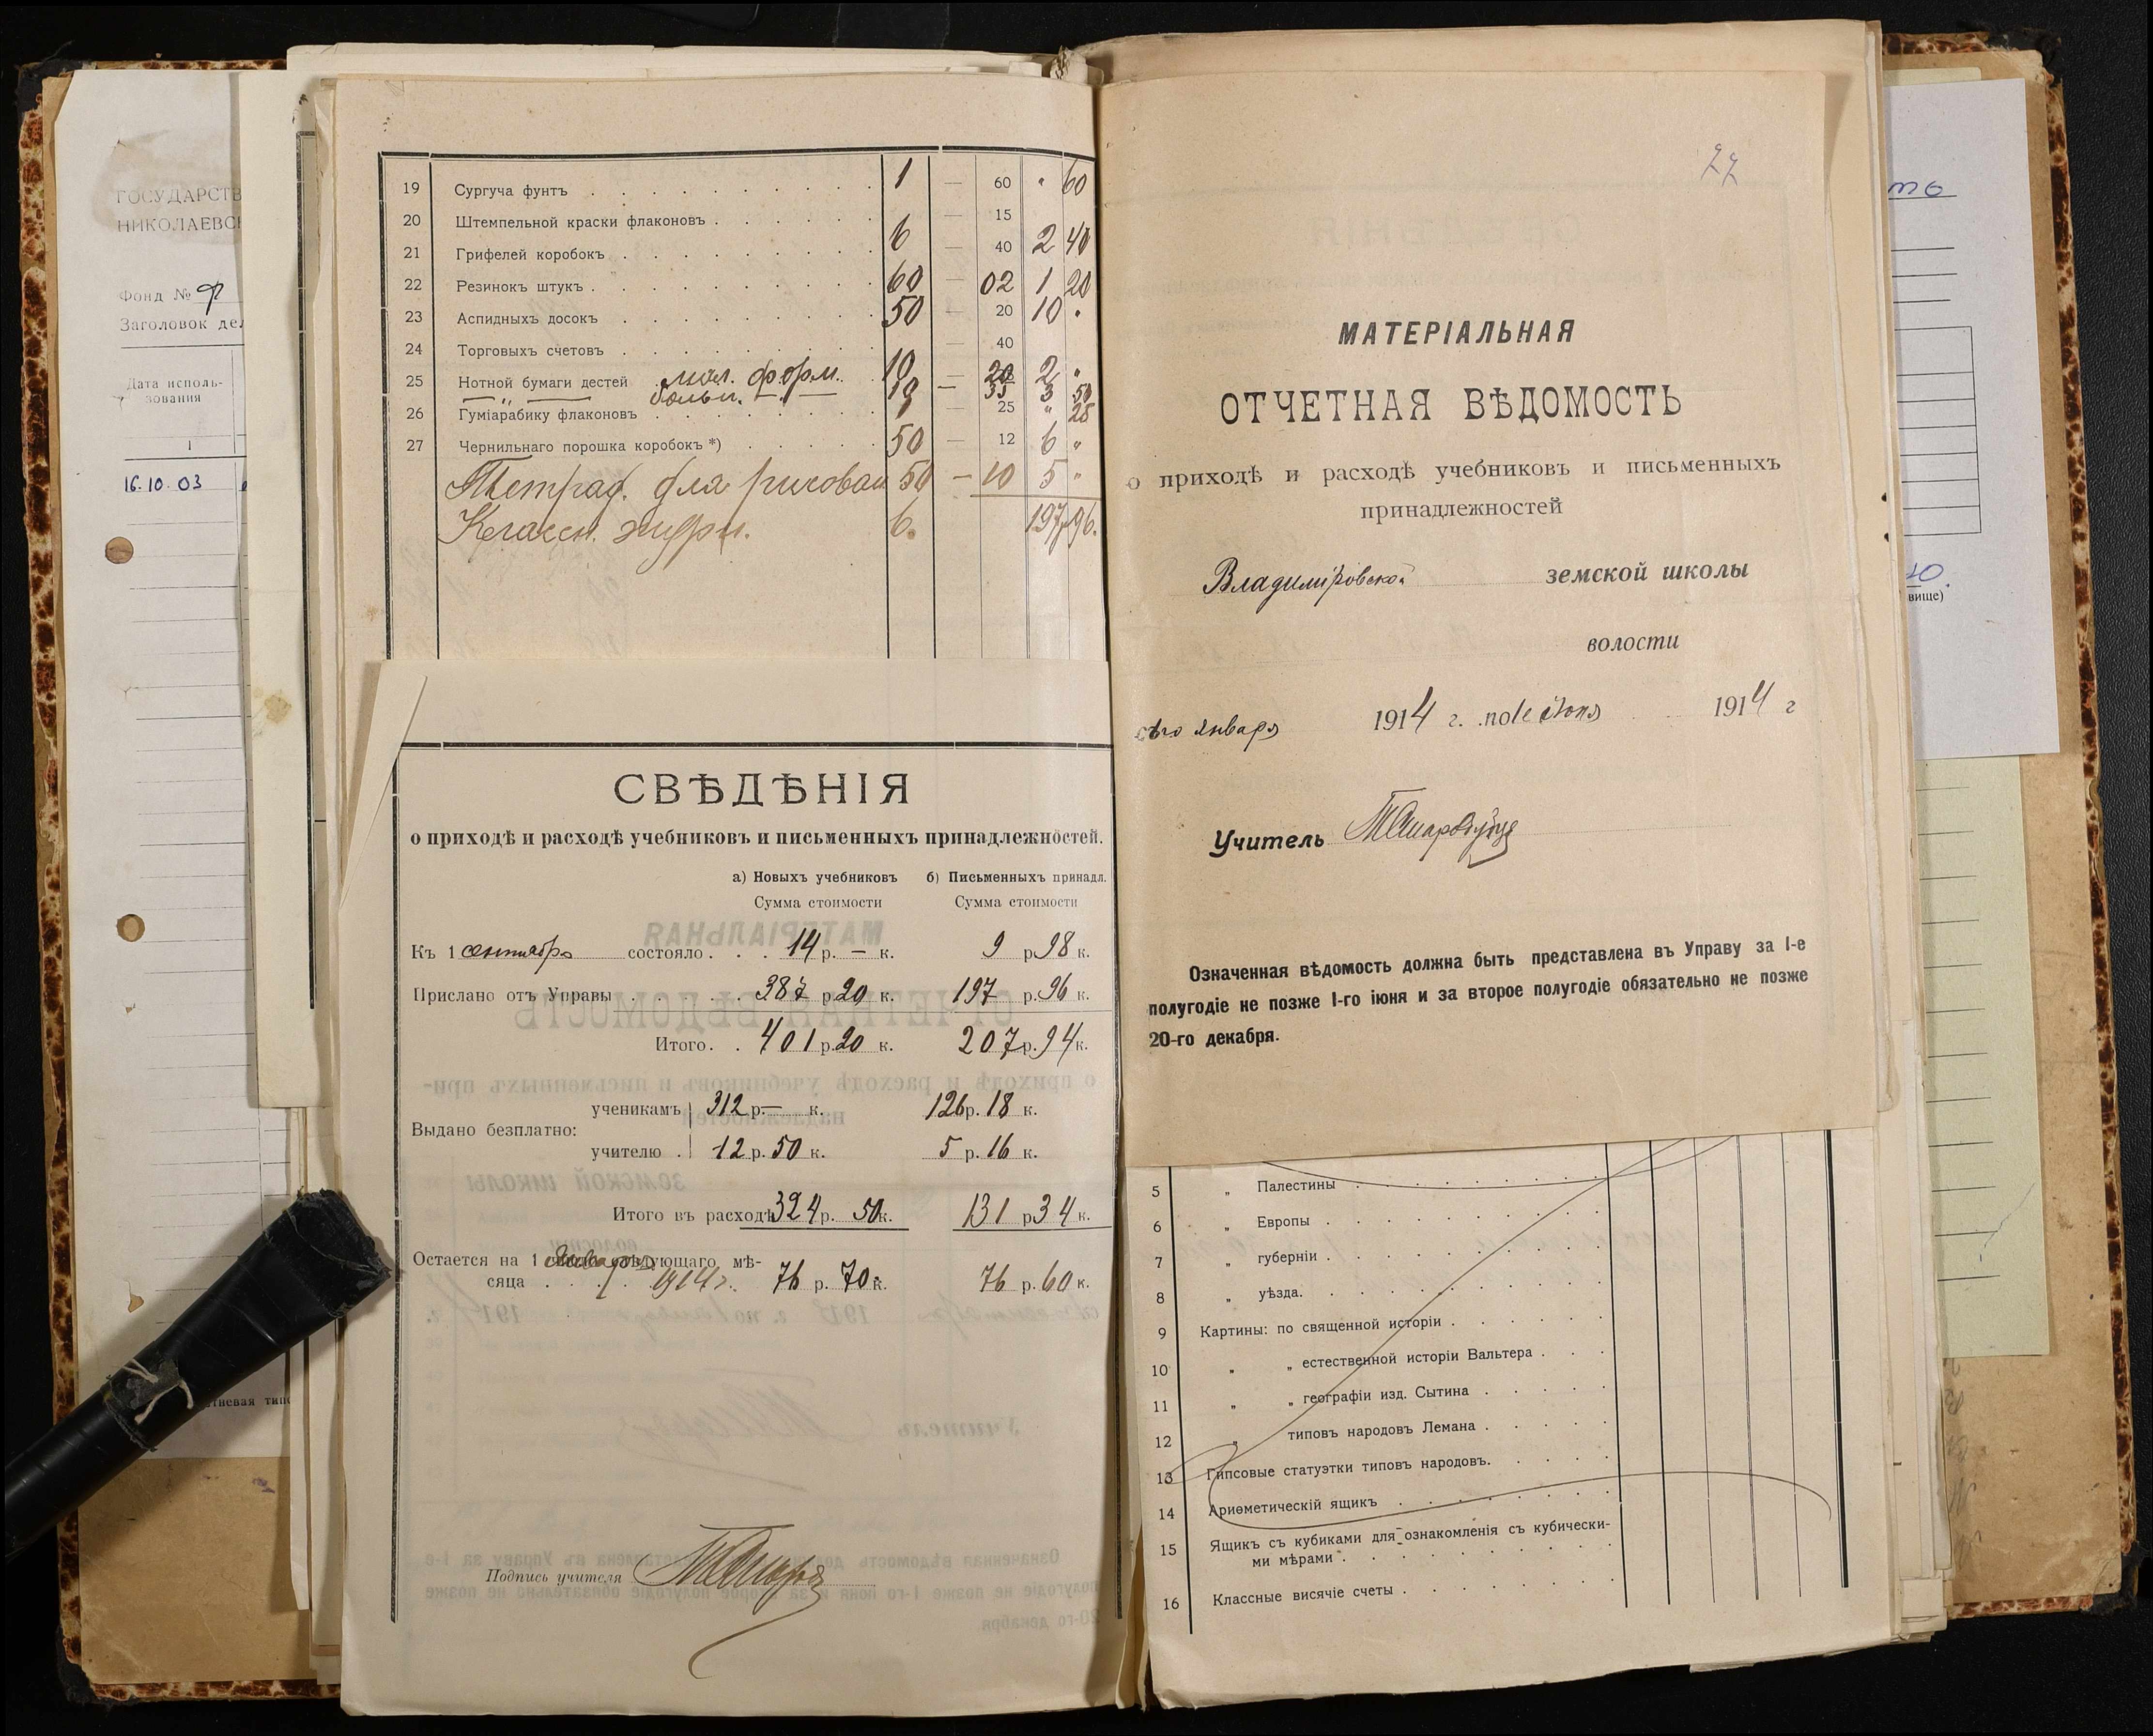 ГОСУДАРСТВ
НИКОЛАЕВС
Фонд №
Заголовок де
Дата исполь-
зования
1
16.10.03
19 Сургуча фунтъ 1 — 60 „ 60
20 Штемпельной краски флаконовъ — 15
21 Грифелей коробокъ 6 — 40 2 40
22 Резинокъ штукъ 60 — 02 1 20
23 Аспидныхъ досокъ 50 — 20 10 „
24 Торговыхъ счетовъ — 40
25 Нотной бумаги дестей мал. форм. 10 — 20 2 „
— „ — больш. — „ — 10 — 35 3 50
26 Гуміарабику флаконовъ 1 — 25 „ 25
27 Чернильнаго порошка коробокъ *) 50 — 12 6 „
Тетрад. для рисован 50 — 10 5 „
Классн. журн. 6. 197 96.
СВѢДѢНІЯ
о приходѣ и расходѣ учебниковъ и письменныхъ принадлежностей.
а) Новыхъ учебниковъ б) Письменныхъ принадл.
Сумма стоимости Сумма стоимости
Къ 1 сентября состояло . . . 14 р. — к. 9 р 98 к.
Прислано отъ Управы . . . . . 387 р 20 к. 197 р. 96 к.
Итого. . 401 р. 20 к. 207 р. 94 к.
Выдано безплатно:
ученикамъ 312 р. — к. 126 р. 18 к.
учителю . 12 р. 50 к. 5 р. 16 к.
Итого въ расходѣ 324 р. 50 к. 131 р 34 к.
Остается на 1 Января слѣдующаго мѣ-
сяца . . . . 1914 г. 76 р. 70 к. 76 р. 60 к.
Подпись учителя
27
МАТЕРІАЛЬНАЯ
ОТЧЕТНАЯ ВѢДОМОСТЬ
о приходѣ и расходѣ учебниковъ и письменныхъ
принадлежностей
Владиміровской земской школы
волости
съ 1го января 1914 г. по 1е іюня 1914 г
Учитель
Означенная вѣдомость должна быть представлена въ Управу за I-е
полугодіе не позже I-го іюня и за второе полугодіе обязательно не позже
20-го декабря.
5 „ Палестины
6 „ Европы
7 „ губерніи
8 „ уѣзда.
9 Картины: по священной исторіи
10 „ „ естественной исторіи Вальтера
11 „ „ географіи изд. Сытина
12 „ типовъ народовъ Лемана
13 Гипсовые статуэтки типовъ народовъ.
14 Ариѳметическій ящикъ
15 Ящикъ съ кубиками для ознакомленія съ кубически-
ми мѣрами
16 Классные висячіе счеты
вище)